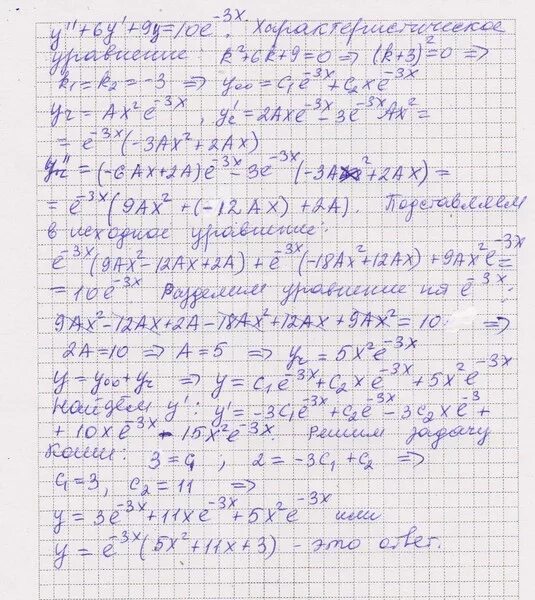 y''+6y'+9y=10e^{-3x}. Характеристическое
уравнение k²+6k+9=0 ⇒ (k+3)²=0 ⇒
k₁=k₂=-3 ⇒ y₀₀=C₁e^{-3x}+C₂xe^{-3x}
yч=Ax²e^{-3x}, yч'=2Axe^{-3x}-3e^{-3x}Ax²=
=e^{-3x}(-3Ax²+2Ax)
yч''=(-6Ax+2A)e^{-3x}-3e^{-3x}(-3Ax²+2Ax)=
=e^{-3x}(9Ax²+(-12Ax)+2A). Подставляем
в исходное уравнение:
e^{-3x}(9Ax²-12Ax+2A)+e^{-3x}(-18Ax²+12Ax)+9Ax²e^{-3x}=
=10e^{-3x} Разделим уравнение на e^{-3x}:
9Ax²-12Ax+2A-18Ax²+12Ax+9Ax²=10 ⇒
2A=10 ⇒ A=5 ⇒ yч=5x²e^{-3x}
y=y₀₀+yч ⇒ y=C₁e^{-3x}+C₂xe^{-3x}+5x²e^{-3x}
Найдем y': y'=-3C₁e^{-3x}+C₂e^{-3x}-3C₂xe^{-3}+
+10xe^{-3x}-15x²e^{-3x}. Решим задачу
Коши: 3=C₁; 2=-3C₁+C₂ ⇒
C₁=3, C₂=11 ⇒
y=3e^{-3x}+11xe^{-3x}+5x²e^{-3x} или
y=e^{-3x}(5x²+11x+3) - это ответ.